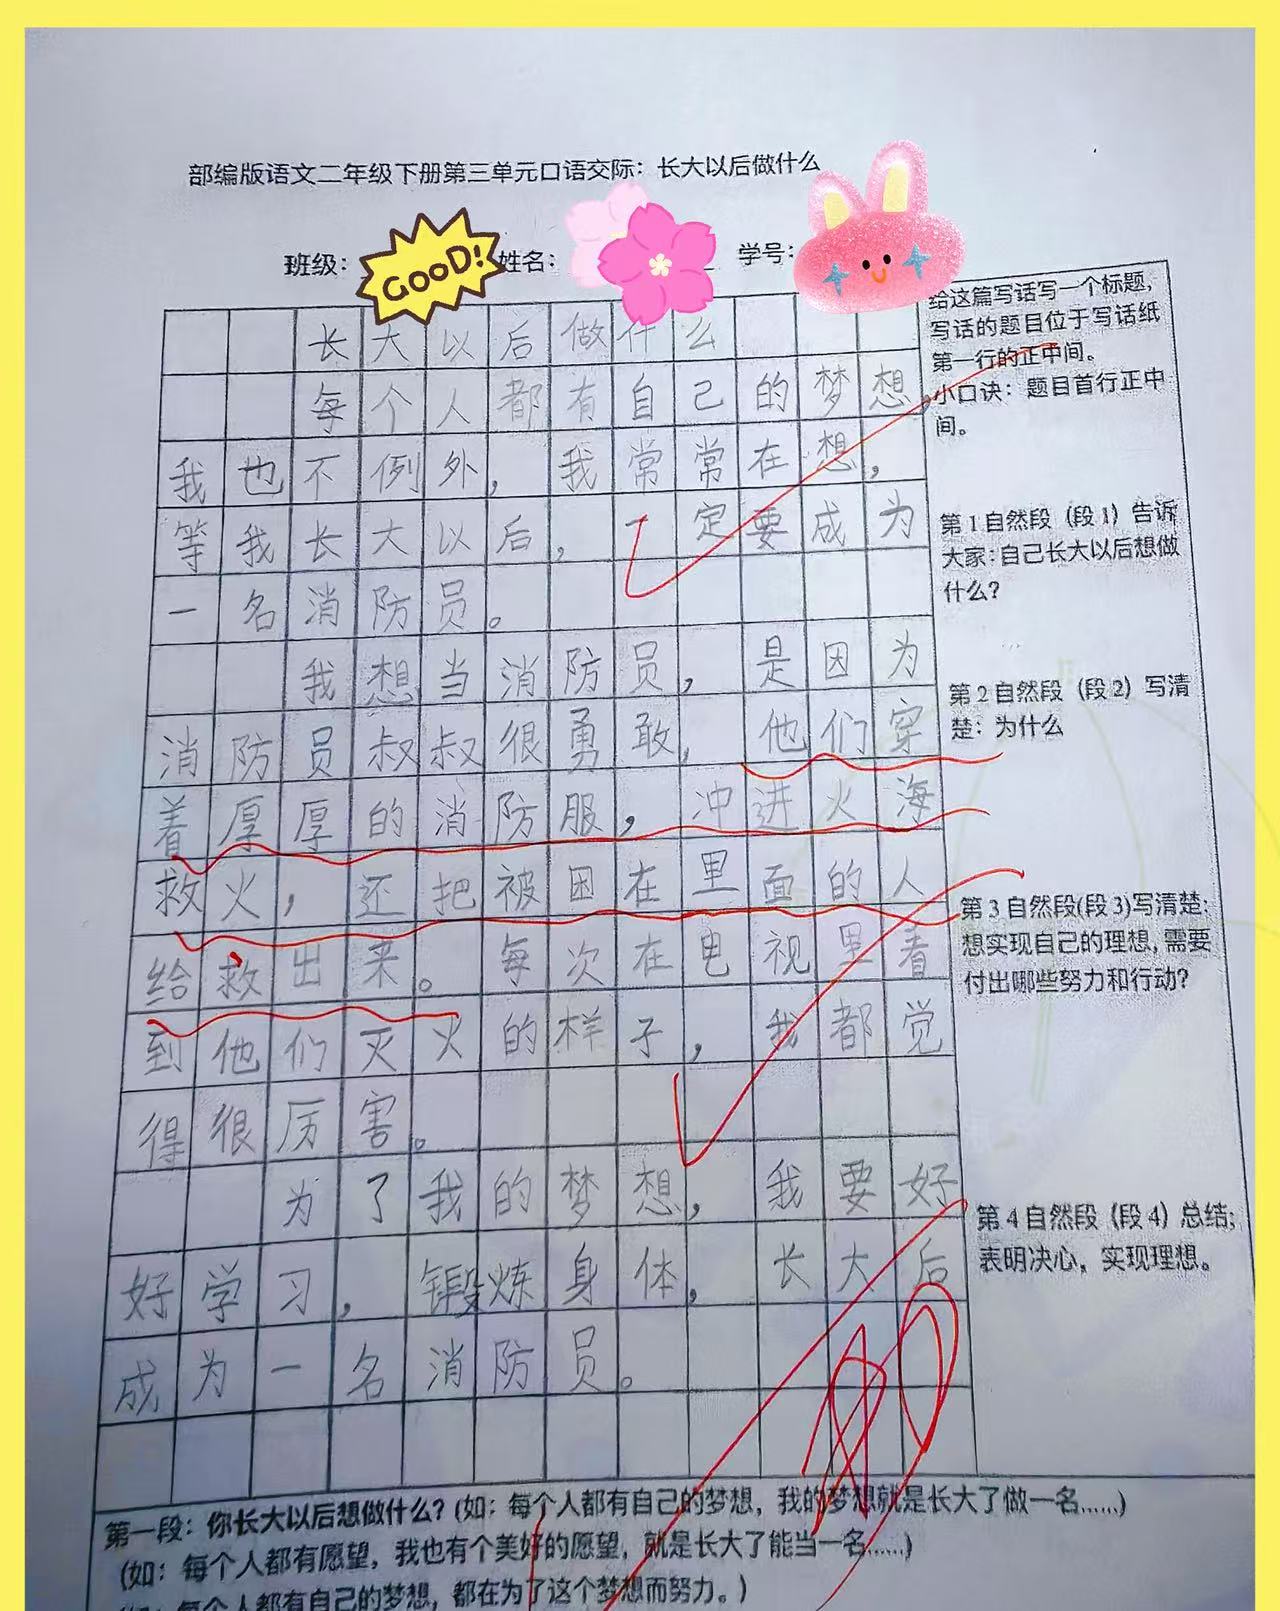 部编版语文二年级下册第三单元口语交际：长大以后做什么
班级：
GOOD!
姓名：
学号：
长大以后做什么
每个人都有自己的梦想，
我也不例外，我常常在想，
等我长大以后，一定要成为
一名消防员。
我想当消防员，是因为
消防员叔叔很勇敢，他们穿
着厚厚的消防服，冲进火海
救火，还把被困在里面的人
给救出来。每次在电视里看
到他们灭火的样子，我都觉
得很厉害。
为了我的梦想，我要好
好学习，锻炼身体，长大后
成为一名消防员。
给这篇写话写一个标题，
写话的题目位于写话纸
第一行的正中间。
小口诀：题目首行正中
间。
第1自然段（段1）告诉
大家：自己长大以后想做
什么？
第2自然段（段2）写清
楚：为什么
第3自然段(段3)写清楚：
想实现自己的理想，需要
付出哪些努力和行动？
第4自然段（段4）总结；
表明决心，实现理想。
第一段：你长大以后想做什么？(如：每个人都有自己的梦想，我的梦想就是长大了做一名……)
(如：每个人都有愿望，我也有个美好的愿望，就是长大了能当一名……)
每个人都有自己的梦想，都在为了这个梦想而努力。)